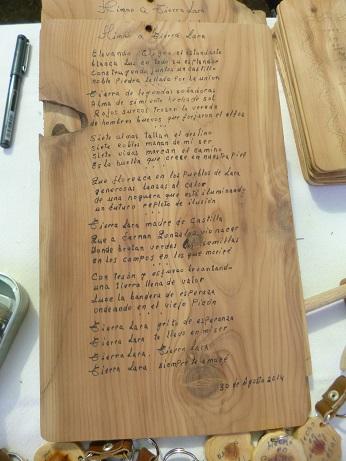 Himno a Tierra Lara
Himno a Tierra Lara
Elevando el estandarte
blanca Luz en todo su esplendor
Construyendo juntos un castillo
noble Piedra tallada por la unión
Tierra de leyendas soñadoras
Alma de simiente hecha de sol
Rojos surcos trazan la vereda
de hombres buenos que forjaron el
Siete almas tallan el destino
Siete nobles manan de mi ser
Siete vidas marcan el camino
Es la huella que crece en nuestra Piel
Que florezca en los Pueblos de Lara
generosas lanzas al calor
de una hoguera que está iluminando
un futuro repleto de ilusión
Tierra madre de Castilla
Que a Fernan Gonzalez vio nacer
Donde brotan verdes las semillas
en los campos en los que moriré
Con tesón y esfuerzo levantando
una tierra llena de valor
Luce la bandera de esperanza
ondeando en el viejo Picón
Tierra Lara grito de esperanza
Tierra Lara te llevo en mi ser
Tierra Lara, Tierra Lara
Tierra Lara siempre te amaré
30 de Agosto 2014